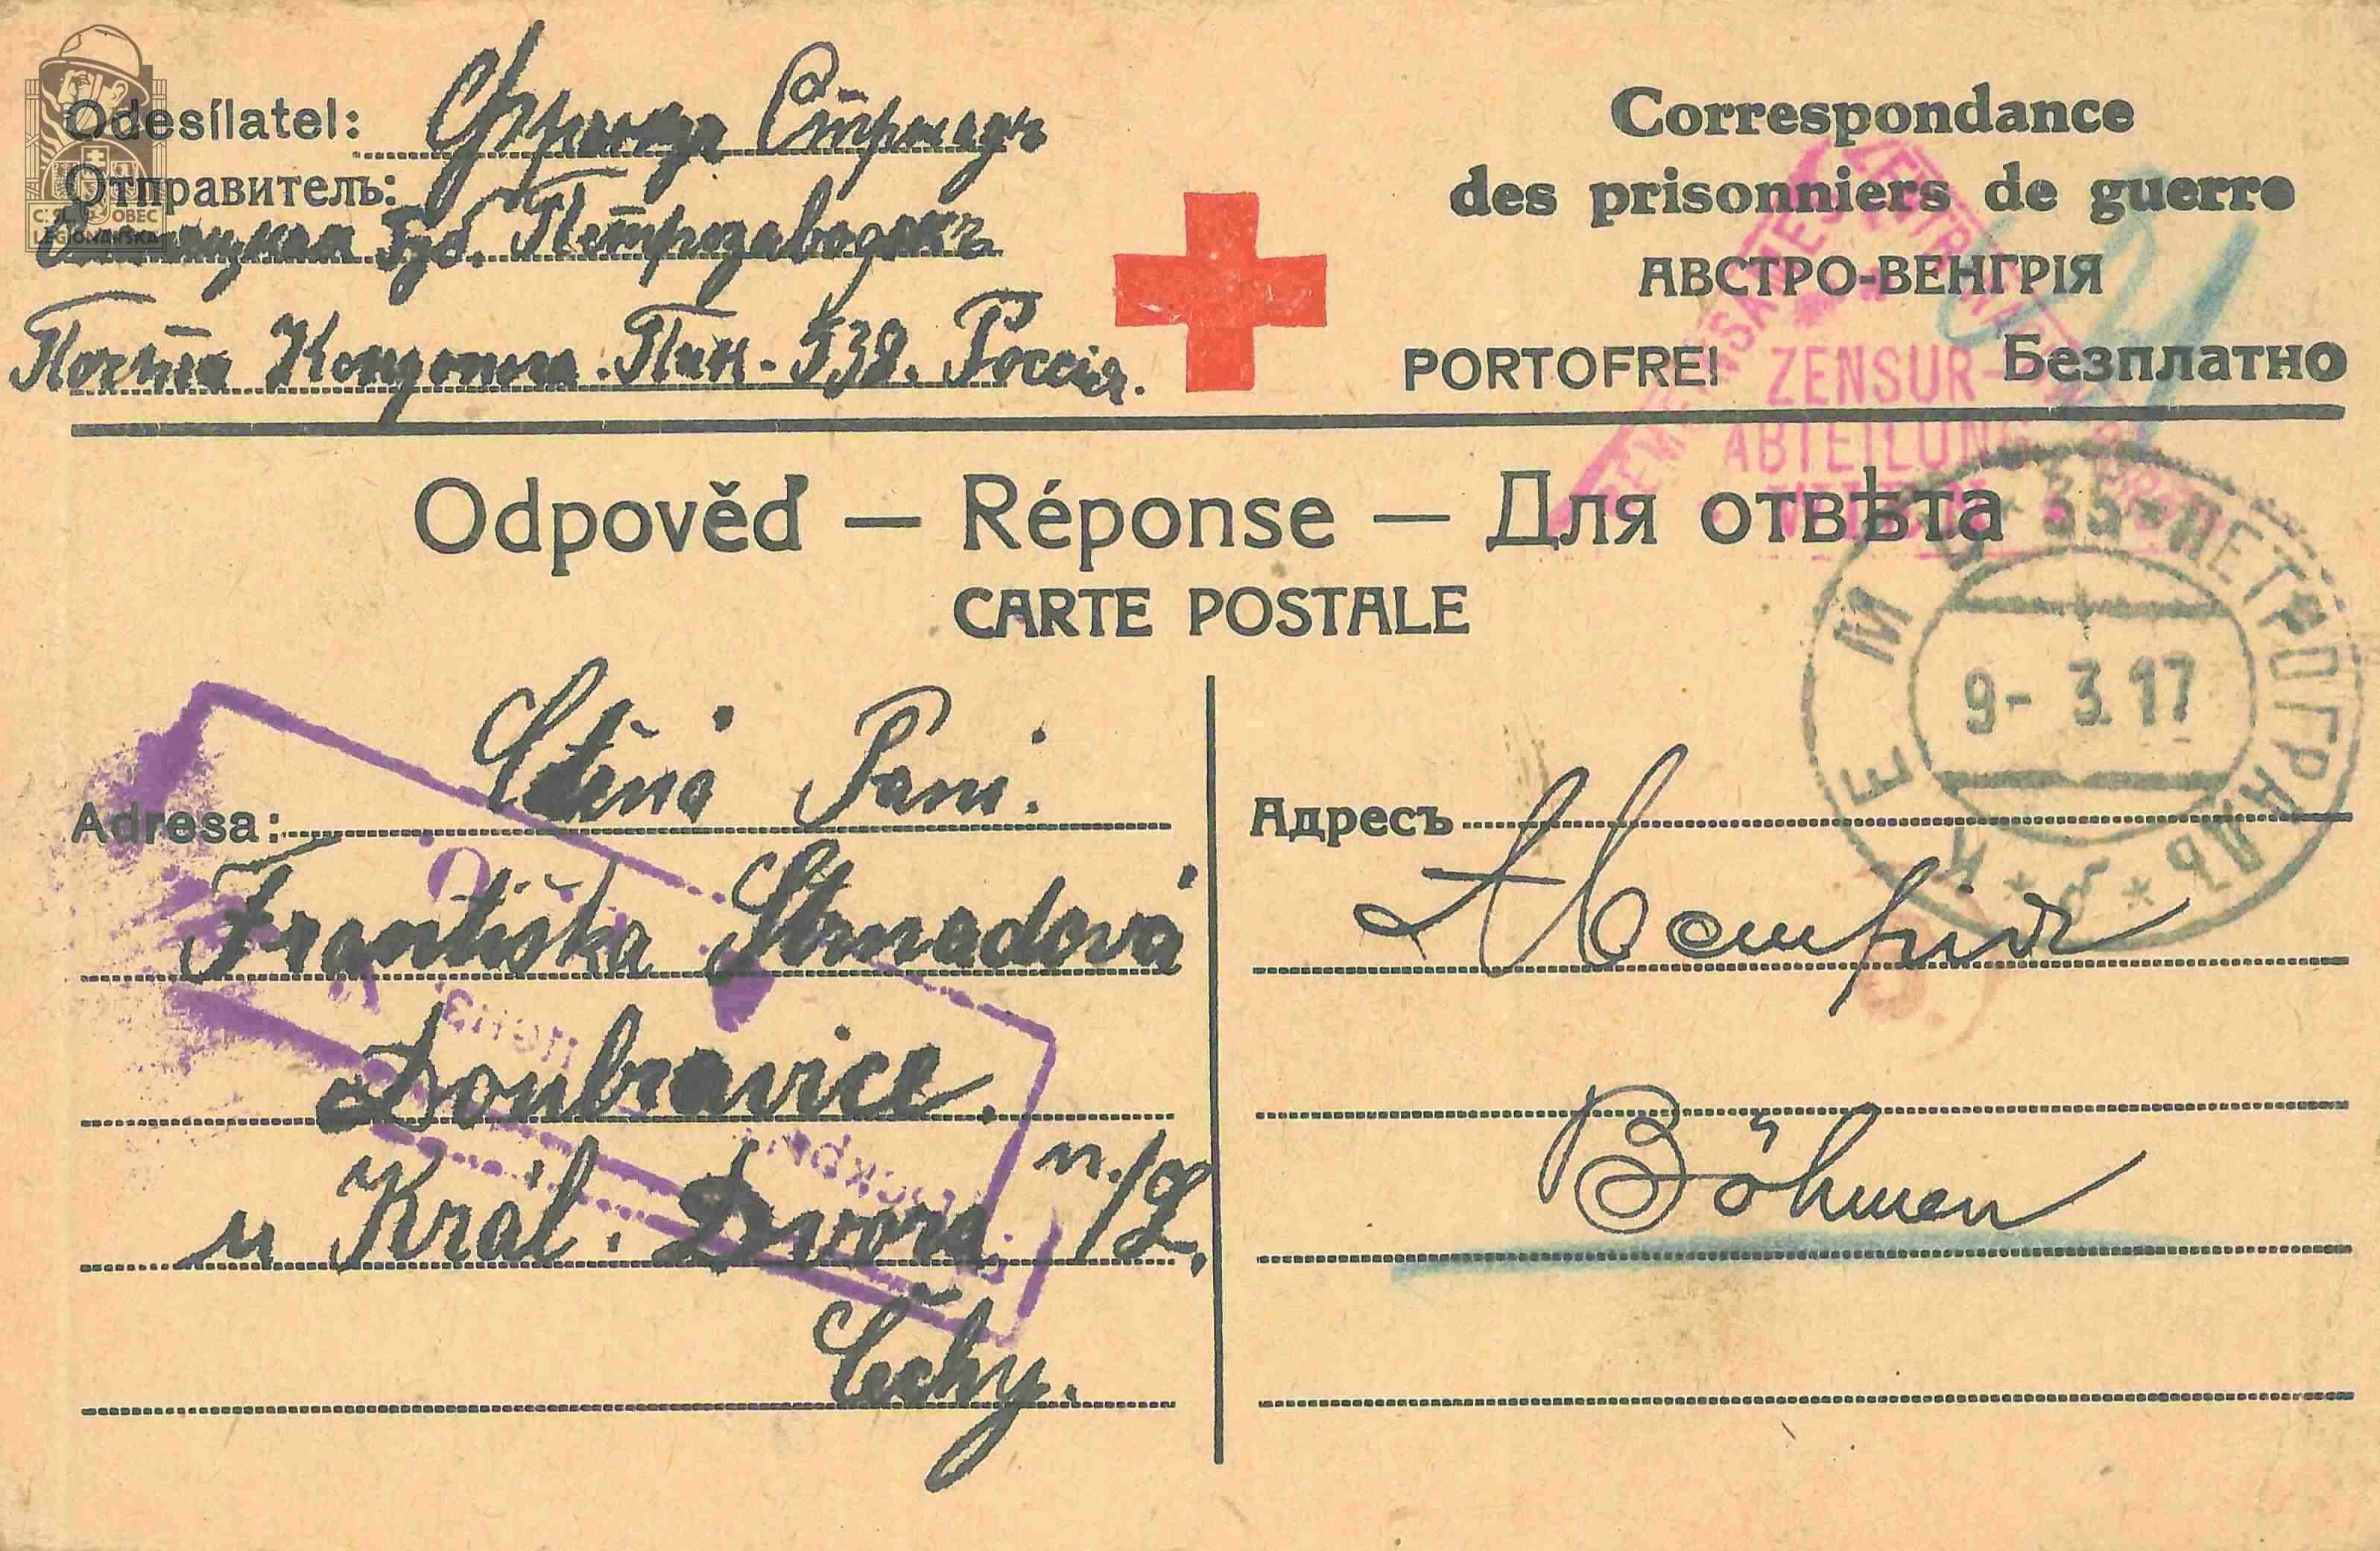 Č.SL. OBEC
LEGIONÁŘSKÁ
Odesílatel: Францъ Стрнадъ
Отправитель:
Губ. Петрозаводскъ
Почта Кондопога. Пик. 538. Россія.
Correspondance
des prisonniers de guerre
АВСТРО-ВЕНГРІЯ
PORTOFREI Безплатно
ZENSUR
ABTEILUNG
Odpověď — Réponse — Для отвѣта
CARTE POSTALE
35 * ПЕТРОГРАДЪ
9- 3.17
Adresa: Ctěná Paní.
Františka Strnadová
Doubravice.
u Král. Dvora n./L.
Čechy.
Адресъ
Австрія
Böhmen